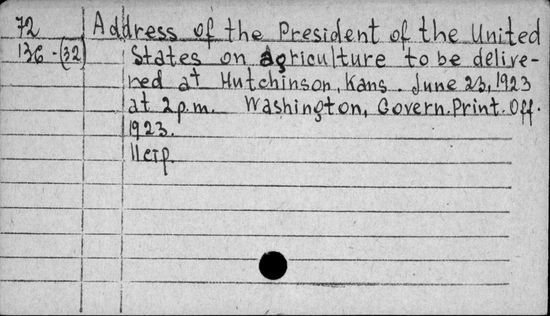 72 Address of the President of the United
136-(32) States on agriculture to be delive-
red at Hutchinson, Kans. June 23, 1923
at 2 p.m. Washington, Govern. Print. Off.
1923.
11 стр.